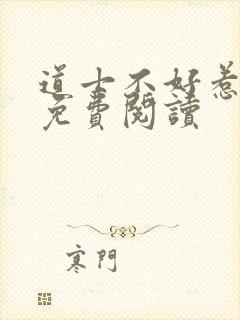 道士不好惹
免費閱讀
寒門